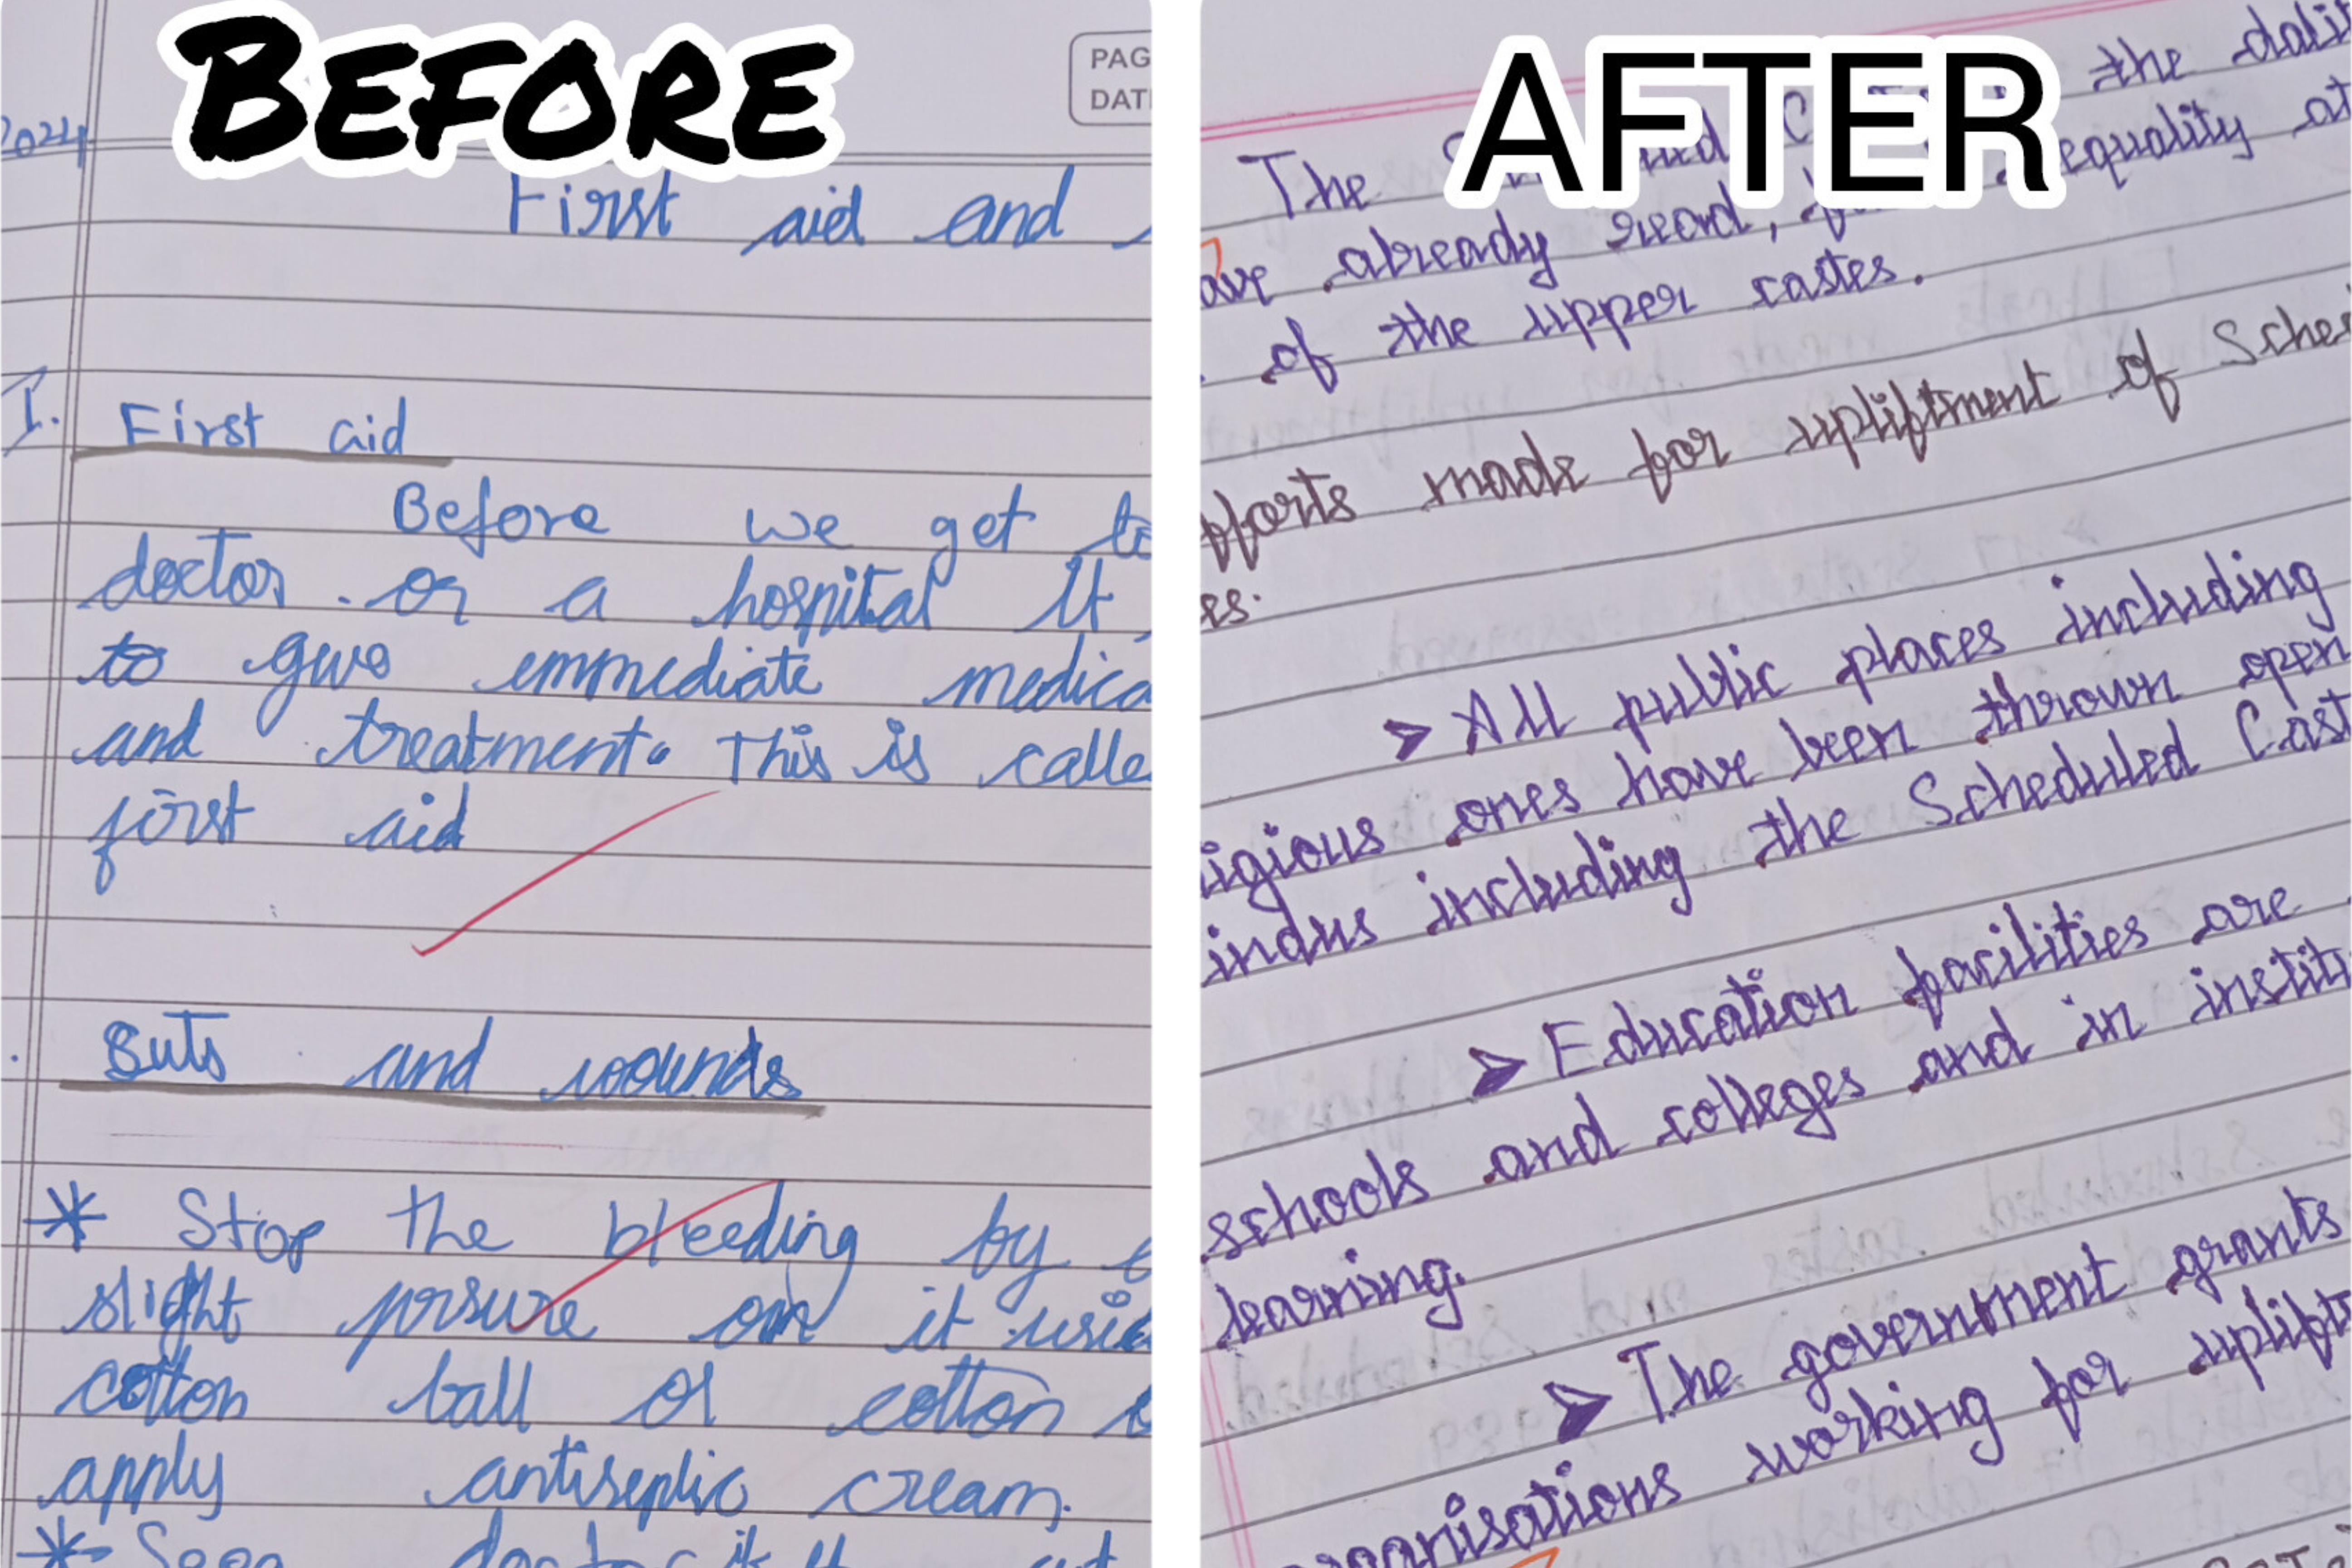 BEFORE
PAG
DAT
2024
First aid and
I. First aid
Before we get to
doctor or a hospital It
to give emmediate medica
and treatment. This is calle
first aid
Buts and wounds
* Stop the bleeding by
slight prsure on it usi
cotton ball or cotton
apply antiseptic cream.
* Soon doctor if
AFTER
The the dalit
ave already read, equality
of the upper castes.
fforts made for upliftment of Sche
es.
➤ All public places including
igious ones have been thrown open
indus including the Scheduled Cast
➤ Education facilities are
schools and colleges and in instit
learning.
➤ The government grants
organisations working for uplift